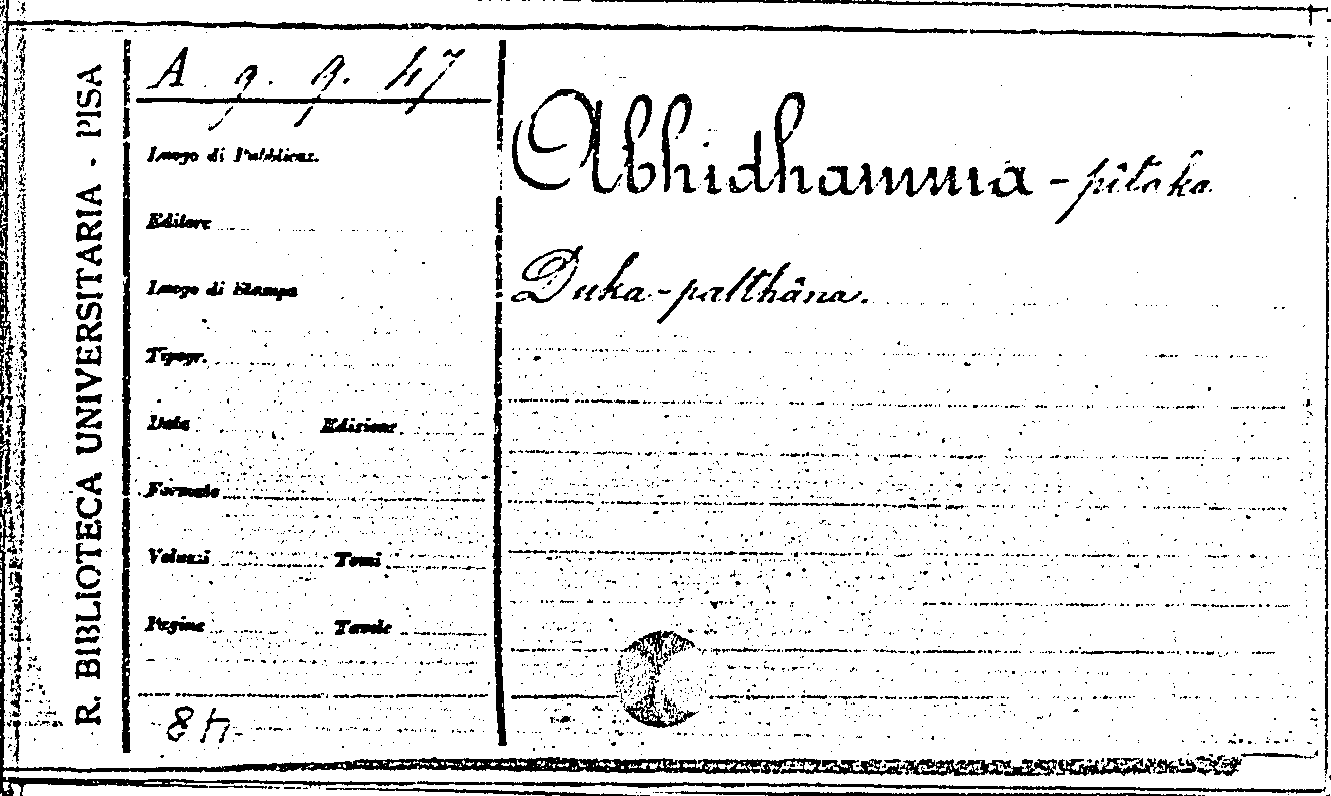 R. BIBLIOTECA UNIVERSITARIA - PISA
A. g. 9. 47
Luogo di Pubblicaz.
Editore
Luogo di Stampa
Tipogr.
Data Edizione
Formato
Volumi Tomi
Pagine Tavole
Abhidhamma-pitaka
Duka-patthâna.